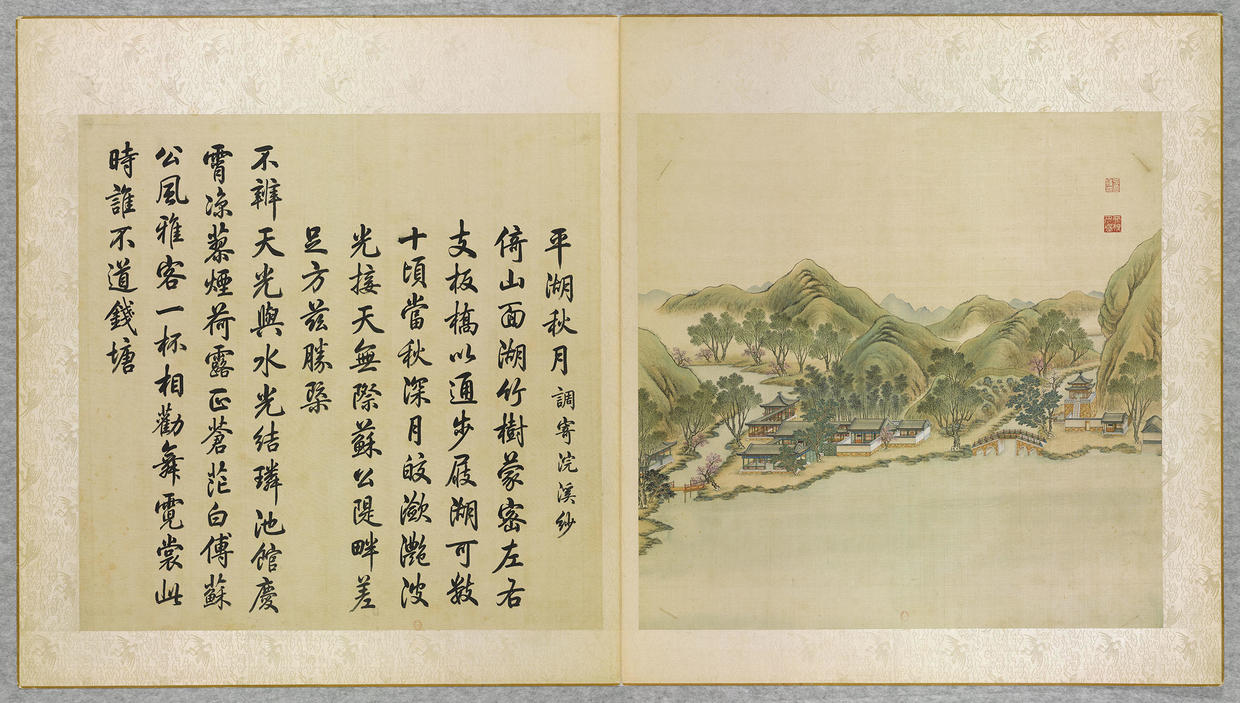 平湖秋月 調寄浣溪紗
倚山面湖竹樹蒙密左右
支板橋以通步屐湖可數
十頃當秋深月皎瀲灩波
光接天無際蘇公隄畔差
足方茲勝槩
不辨天光與水光結璘池館慶
霄涼蓼煙荷露正蒼茫白傅蘇
公風雅客一杯相勸舞霓裳此
時誰不道錢塘